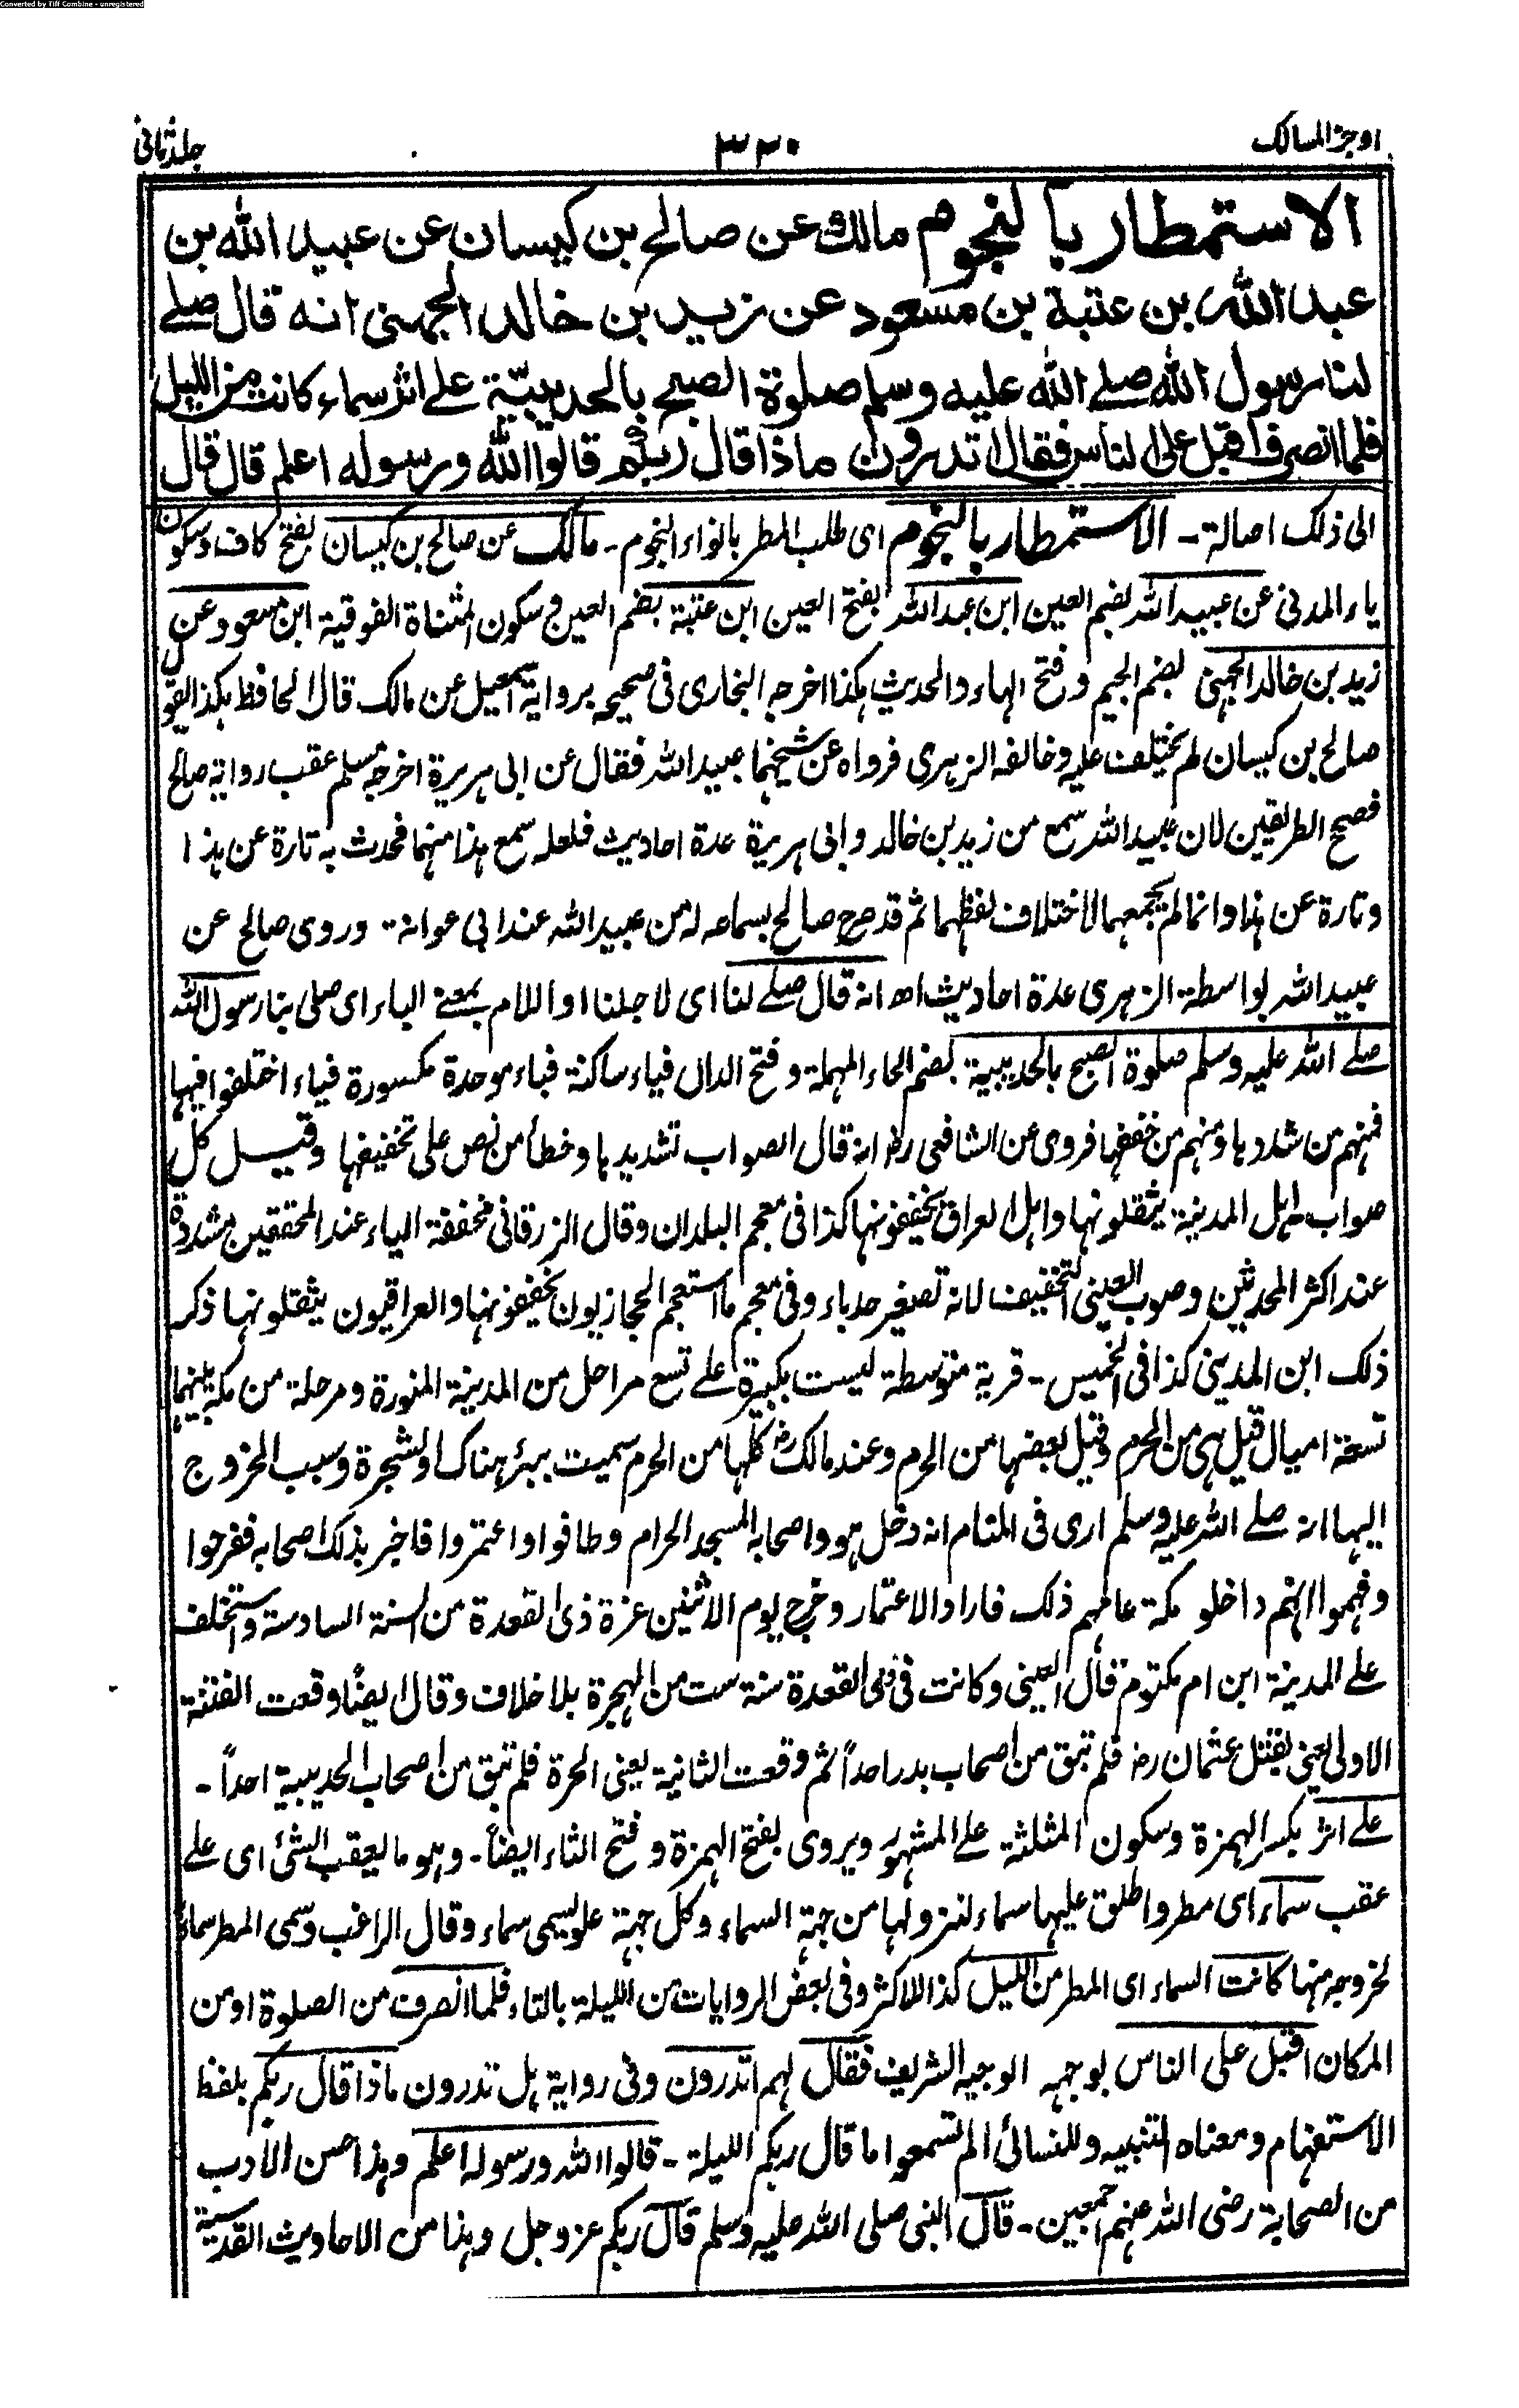 Converted by Tiff Combine - unregistered
اوجز المسالک ٣٣٠ جلد ثانی
الاستمطار بالنجوم مالك عن صالح بن كيسان عن عبيد الله بن
عبد الله بن عتبة بن مسعود عن زيد بن خالد الجهني انه قال صلے
لنا رسول الله صلے الله عليه وسلم صلوة الصبح بالحديبيّة علے اثر سماء كانت من الليل
فلما انصرف اقبل على الناس فقال اتدرون ماذا قال ربكم قالوا الله ورسوله اعلم قال قال
الی ذلک اصالة - الاستمطار بالنجوم ای طلب المطر بانواء النجوم - مالک عن صالح بن کیسان بفتح کاف وسکون
یاء المدنی عن عبید الله بضم العین ابن عبد الله بفتح العین ابن عتبة بضم العین وسکون المثناة الفوقیة ابن مسعود عن
زید بن خالد الجہنی بضم الجیم وفتح الہاء والحدیث ہکذا اخرجہ البخاری فی صحیحہ بروایة اسمعیل عن مالک قال الحافظ ہکذا یقول
صالح بن کیسان لم یختلف علیہ وخالفہ الزہری فرواہ عن شیخہما عبید الله فقال عن ابی ہریرة اخرجہ مسلم عقب روایة صالح
فصح الطریقین لان عبید الله سمع من زید بن خالد وابی ہریرة عدة احادیث فلعلہ سمع ہذا منہما فحدث بہ تارة عن ہذا
وتارة عن ہذا وانما لم یجمعہما لاختلاف لفظہما ثم قد صرح صالح بسماعہ لہ من عبید الله عند ابی عوانة وروی صالح عن
عبید الله بواسطة الزہری عدة احادیث اھ انہ قال صلے لنا ای لاجلنا او اللام بمعنے الباء ای صلی بنا رسول الله
صلے الله علیہ وسلم صلوة الصبح بالحدیبیة بضم الحاء المہملة وفتح الدال فیاء ساکنة فباء موحدة مکسورة فیاء اختلفوا فیہا
فمنہم من شددہا ومنہم من خففہا فروی عن الشافعی رح انہ قال الصواب تشدیدہا وخطأ من نص علی تخفیفہا وقیل کل
صواب اہل المدینة یثقلونہا واہل العراق یخففونہا کذا فی معجم البلدان وقال الزرقانی مخففة الیاء عند المحققین مشددة
عند اکثر المحدثین وصوب العینی التخفیف لانہ تصغیر حدباء وفی معجم ما استعجم الحجازیون یخففونہا والعراقیون یثقلونہا ذکر
ذلک ابن المدینی کذا فی الخمیس - قریة متوسطة لیست بکبیرة علے تسع مراحل من المدینة المنورة ومرحلة من مکة بینہما
تسعة امیال قیل ہی من الحرم وقیل بعضہا من الحرم وعند مالک رح کلہا من الحرم سمیت ببئر ہناک او لشجرة وسبب الخروج
الیہا انہ صلے الله علیہ وسلم اری فی المنام انہ دخل ہو واصحابہ المسجد الحرام وطافوا واعتمروا فاخبر بذلک اصحابہ ففرحوا
وفہموا انہم داخلو مکة عامہم ذلک فاراد الاعتمار وخرج یوم الاثنین غرة ذی القعدة من السنة السادسة واستخلف
علے المدینة ابن ام مکتوم قال العینی وکانت فی ذی القعدة سنة ست من الہجرة بلا خلاف وقال ایضًا وقعت الفتنة
الاولی یعنی بقتل عثمان رض فلم تبق من اصحاب بدر احداً ثم وقعت الثانیة یعنی الحرة فلم تبق من اصحاب الحدیبیة احداً -
علے اثر بکسر الہمزة وسکون المثلثة علے المشہور ویروی بفتح الہمزة وفتح الثاء ایضاً - وہو ما یعقب الشئ ای علے
عقب سماء ای مطر واطلق علیہا سماء لنزولہا من جہة السماء وکل جہة علو یسمی سماء وقال الراغب وسمی المطر سماء
لخروجہ منہا کانت السماء ای المطر من اللیل کذا للاکثر وفی بعض الروایات من اللیلة بالتاء فلما انصرف من الصلوة او من
المکان اقبل علی الناس بوجہہ الوجیہ الشریف فقال لہم اتدرون وفی روایة ہل تدرون ماذا قال ربکم بلفظ
الاستفہام ومعناہ التنبیہ وللنسائی الم تسمعوا ما قال ربکم اللیلة - قالوا الله ورسولہ اعلم وہذا حسن الادب
من الصحابة رضی الله عنہم اجمعین - قال النبی صلی الله علیہ وسلم قال ربکم عزوجل وہذا من الاحادیث القدسیة